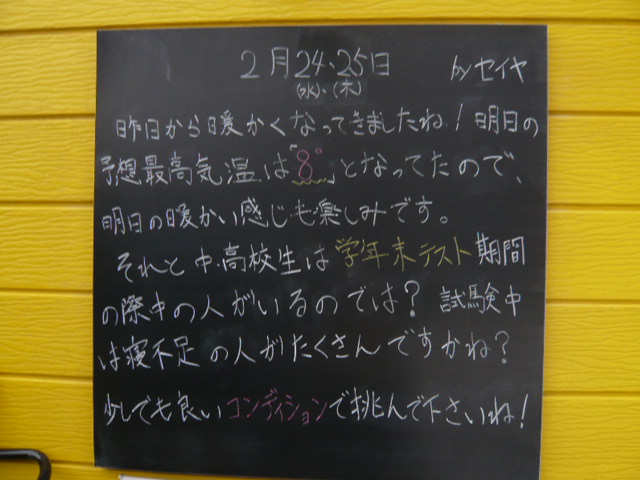 2月24、25日 byセイヤ
(水)、(木)
昨日から暖かくなってきましたね！明日の
予想最高気温は「8°」となってたので、
明日の暖かい感じも楽しみです。
それと中・高校生は学年末テスト期間
の際中の人がいるのでは？試験中
は寝不足の人がたくさんですかね？
少しでも良いコンディションで挑んで下さいね！